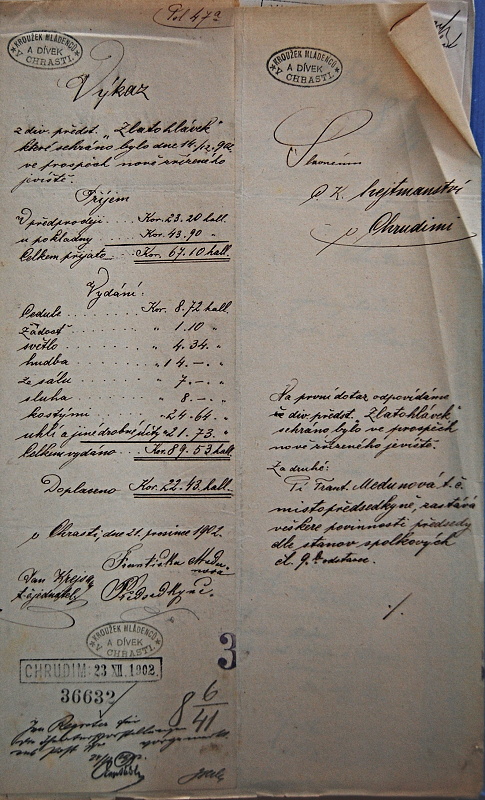 Pol 47a
KROUŽEK MLÁDENCŮ
A DÍVEK
V CHRASTI.
Výkaz
z div. předst. „Zlatohlávek“
které sehráno bylo dne 14/12 902
ve prospěch nově zřízeného
jeviště.
Příjem
V předprodeji . . . Kor. 23.20 hall.
u pokladny . . . Kor. 43.90 „
Celkem přijato . . Kor. 67.10 hall.
Vydání:
Cedule . . . . . Kor. 8.72 hall.
žádost . . . . . „ 1.10 „
světlo . . . . . „ 4.34 „
hudba . . . . . „ 14.–. „
za sálu . . . . . „ 7.–. „
sluha . . . . . „ 8.–. „
kostýmy . . . . „ 24.64. „
uhlí a jiné drobné účty „ 21.73. „
Celkem vydáno . . Kor. 89.53 hall.
Doplaceno Kor. 22.43 hall.
v Chrasti, dne 21. prosince 1902.
Františka Medunová
Jan Krejsa
t. č. jednatel
Předsedkyně.
KROUŽEK MLÁDENCŮ
A DÍVEK
V CHRASTI.
CHRUDIM 23 XII. 1902.
36632
8 6/41
3
KROUŽEK MLÁDENCŮ
A DÍVEK
V CHRASTI.
Slavnému
C. K. hejtmanství
v Chrudimi
Na první dotaz odpovídáme
že div. předst. „Zlatohlávek“
sehráno bylo ve prospěch
nově zřízeného jeviště.
Za druhé:
Pí Frant. Medunová t. č.
místopředsedkyně, zastává
veškeré povinnosti předsedy
dle stanov spolkových
čl. 9. odstavec.
./.